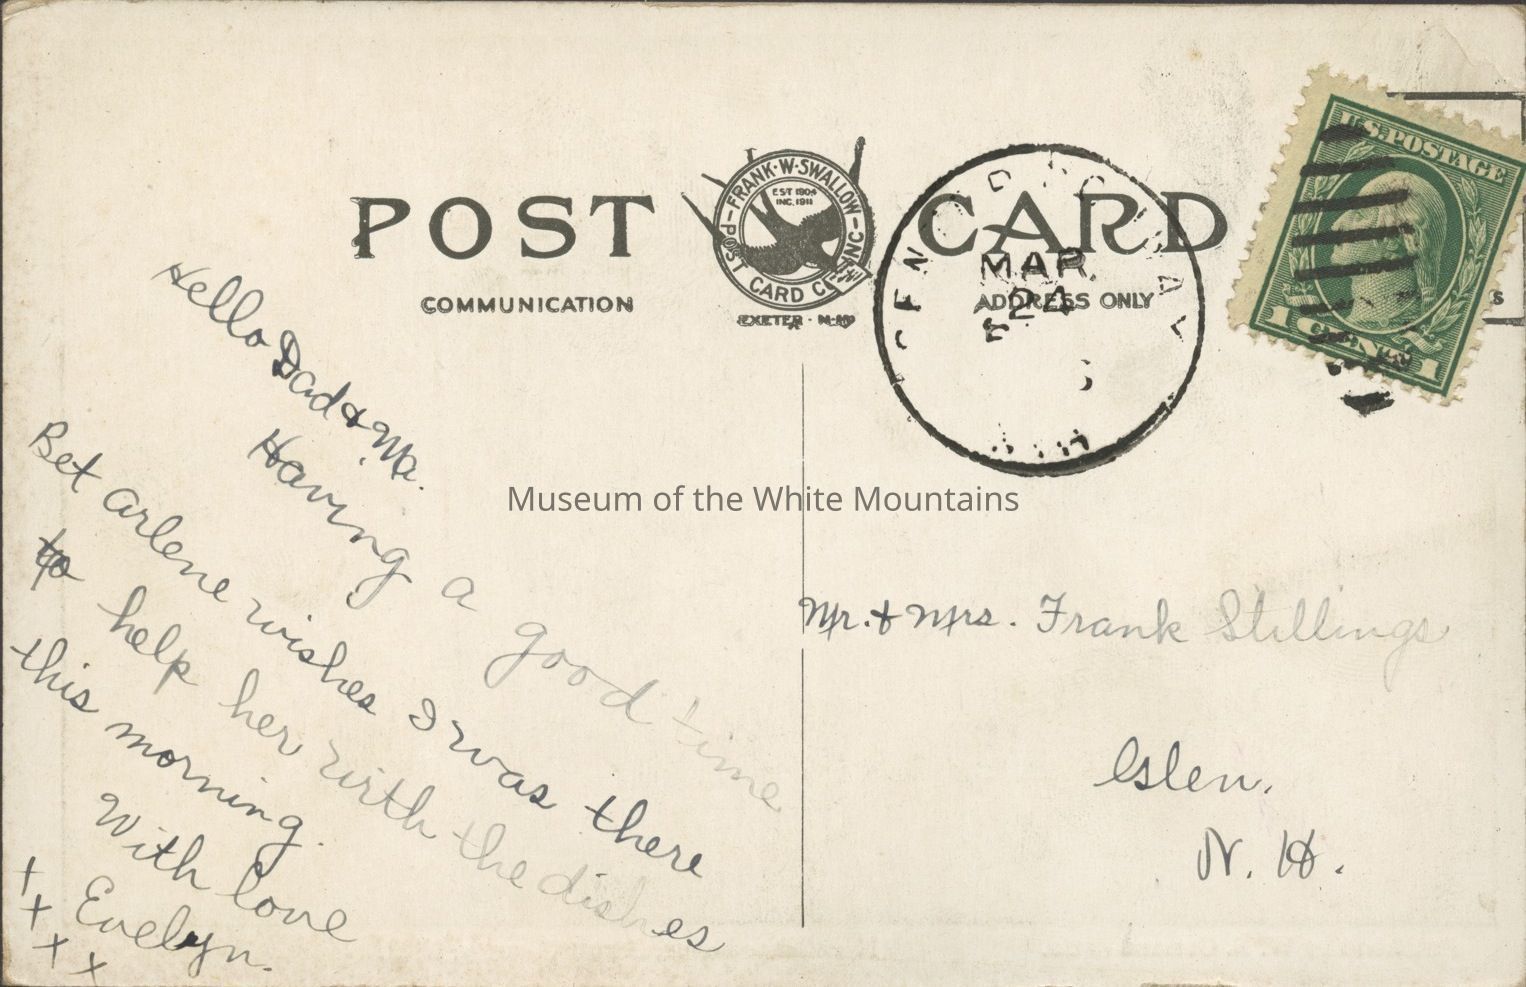 POST CARD
FRANK·W·SWALLOW
EST 1904
INC. 1911
POST CARD INC
EXETER · N·H
COMMUNICATION
ADDRESS ONLY
MAR.
24
U.S. POSTAGE
1 CENT 1
Hello Dad & Ma.
Having a good time
Bet Arlene wishes I was there
to help her with the dishes
this morning.
With love
Evelyn.
+
+
+
+
Mr. & Mrs. Frank Stillings
Glen.
N. H.
Museum of the White Mountains